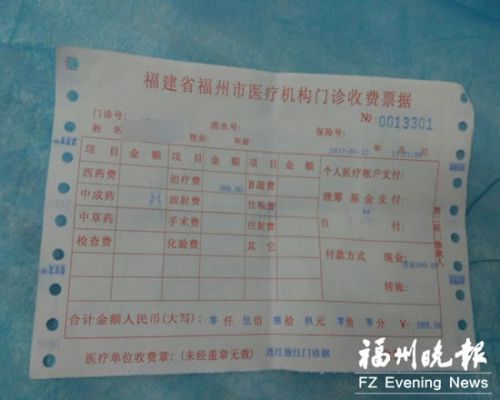 福建省福州市医疗机构门诊收费票据
门诊号: 流水号: 保险号: No:0013301
姓名 性别: 年龄 年 月 日
项目 金额 项目 金额 项目 金额 个人医疗帐户支付:
西药费 治疗费 B超费 统筹基金支付:
中成药 放射费 住院费 自 付:
中草药 手术费 注射费 付款方式 现金:
检查费 化验费 其它 转账:
合计金额人民币(大写): 零仟 伍佰 捌拾 玖元 零角 零分 ¥: 589.00
医疗单位收费章: (未经盖章无效) 连江敖江门诊部
福州晚报
FZ Evening News